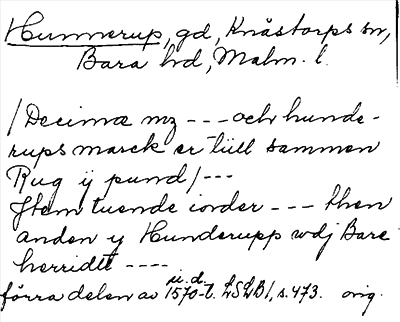 Hunnerup, gd, Knåstorps sn,
Bara hd, Malm. l.
/Decimæ mz --- och hunde-
rups marck er till sammen
Rug ij pund/---
Jtem tuende iorder --- then
anden y Hunderupp wdj Bare
herridt ----
u.d.
förra delen av 1570-t. LSLB1, s. 473. orig.